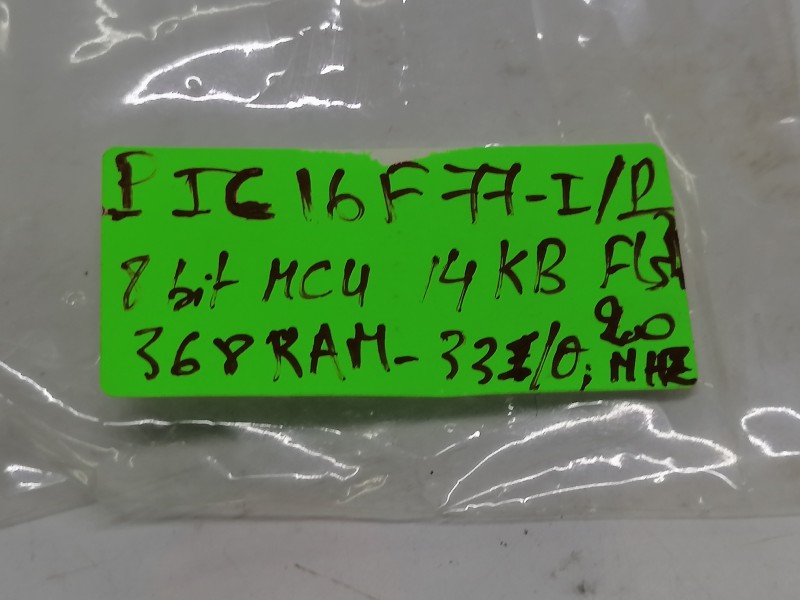 PIC16F77-I/P
8 bit MCU 14KB Flsh
368 RAM- 33I/O; 20 MHZ